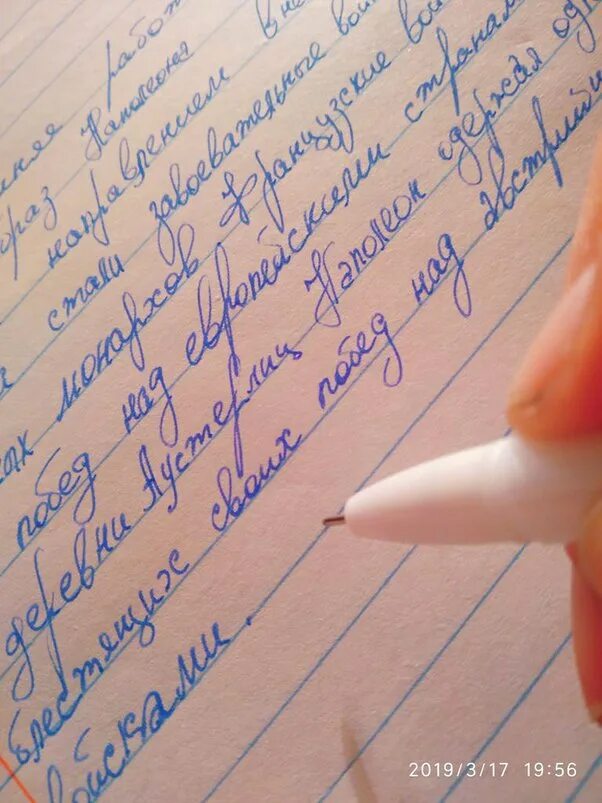 работ
Наполеона вне
направлением
стали завоевательные вой
монархов Французские вой
побед над европейскими странам
деревни Аустерлиц Наполеон одержал од
блестящих своих побед над австрий
войсками.
2019/3/17 19:56